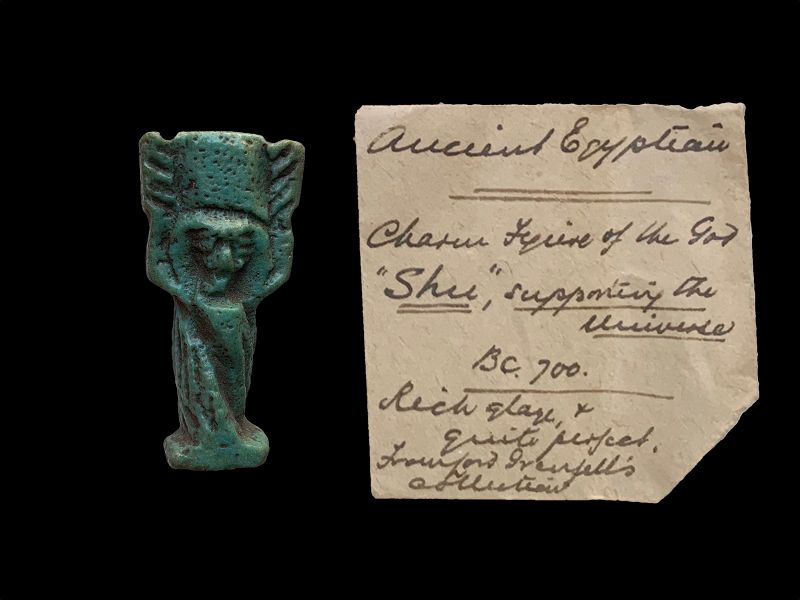 Ancient Egyptian
Charm Figure of the God
"Shu", supporting the
Universe
BC. 700.
Rich glaze, &
quite perfect.
From Lord Grenfell's
collection